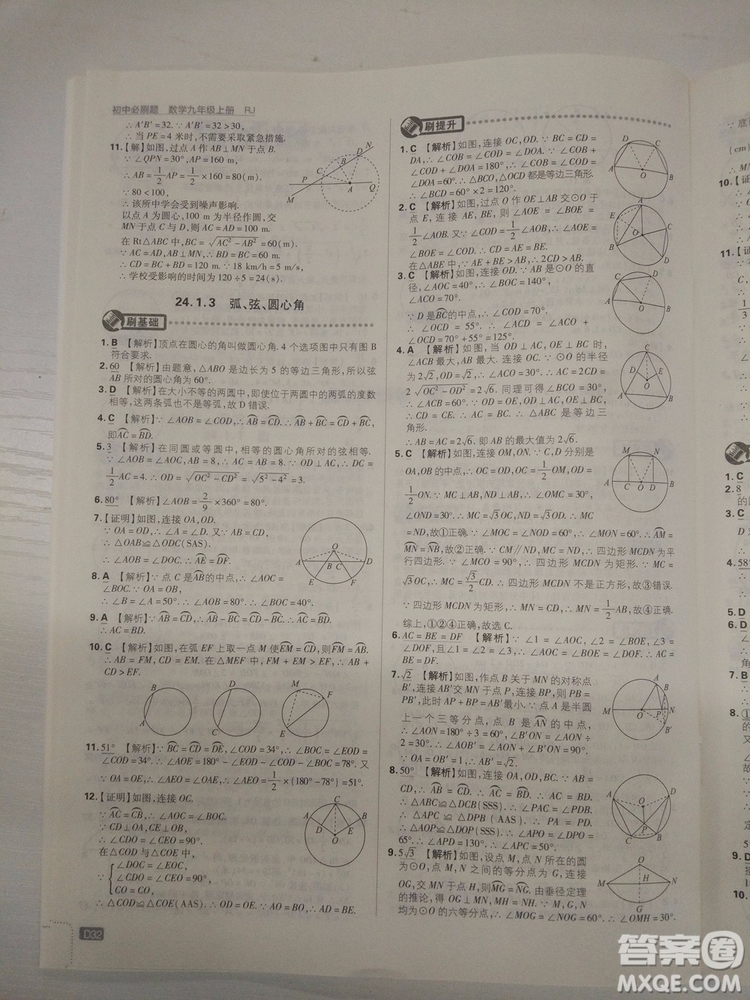 初中必刷题 数学九年级上册 RJ
∴A'B'=32.∵A'B'=32>30,
∴当 PE=4 米时,不需要采取紧急措施.
11.【解】如图,过点 A 作 AB⊥MN 于点 B.
∵∠QPN=30°,∠ABP=90°,AP=160,
∴AB=1/2AP=1/2×160=80(m).
∵80<100,
∴该所中学会受到噪声影响.
以点 A 为圆心,100 m 为半径作圆,交
MN于点 C与D,则 AC=AD=100 m.
在 Rt△ABC 中,BC=√(AC²-AB²)=60(m).
∵AC=AD,AB⊥CD,∴BC=BD=60 m.
∴CD=BC+BD=120 m.
∴学校受影响的时间为 120÷5=24(s).
24.1.3 弧、弦、圆心角
刷基础
1.B 【解析】顶点在圆心的角叫做圆心角.4 个选项图中只有图 B
符合要求.
2.60 【解析】由题意,△ABO 是边长为 5 的等边三角形,所以弦
AB 所对的圆心角为 60°.
3.D 【解析】在大小不等的两圆中,即使位于两圆中的两弧的度数
相等,这两条弧也不相等,故 D 错误.
4.C 【解析】∵∠AOB=∠COD,∴AB=CD.∴AB+BC=CD+BC,
即AC=BD.
5.3 【解析】在同圆或等圆中,相等的圆心角所对的弦相等.
∵∠AOC=∠AOB,AB=8,∴AC=AB=8.∵OD⊥AC,∴DC=
1/2AC=4.∴OD=√(OC²-CD²)=√(5²-4²)=3.
6.80° 【解析】∠AOB=2/9×360°=80°.
7.【证明】如图,连接 OA,OD.
∵OA=OD,∴∠A=∠D.
∴△OAB≌△ODC(SAS).
∴∠AOB=∠DOC.∴AE=DF.
8.A 【解析】∵点 C 是AB的中点,∴∠AOC=
∠BOC.∵OA=OB,
∴∠B=∠A=50°.∴∠BOC=90°-∠B=40°.
9.A 【解析】∵AB=CD,∴AB-BC=CD-BC.∴AC=BD.
∴AC=BD.
10.C 【解析】如图,在弧 EF 上取一点 M 使EM=CD,则FM=
AB.∴AB=FM,CD=EM.在△MEF 中,FM+EM>EF,∴AB+
CD>EF.
11.51° 【解析】∵BC=CD=DE,∠COD=34°,∴∠BOC=∠EOD=
∠COD=34°.∴∠AOE=180°-∠EOD-∠COD-∠BOC=78°.又
∵OA=OE,∴∠AEO=∠OAE.∴∠AEO=1/2×(180°-78°)=51°.
12.【证明】如图,连接 OC.
∵AC=BC,∴∠AOC=∠BOC.
∵CD⊥OA,CE⊥OB,
∴∠CDO=∠CEO=90°.
在△COD 与△COE 中,
∵
∠DOC=∠EOC,
∠CDO=∠CEO,
CO=CO,
∴△COD≌△COE(AAS).∴OD=OE.∵AO=BO,∴AD=BE.
D32
刷提升
1.C 【解析】如图,连接 OC,OD.∵BC=CD=
DA,∴∠COB=∠COD=∠DOA.∵∠COB+
∠COD+∠DOA=180°,∴∠COB=∠COD=
∠DOA=60°.∴△BCO,△DCO都是等边三角
形.∴∠BCD=60°×2=120°.
2.C 【解析】如图,过点 O 作 OE⊥AB 交⊙O 于
点 E,连接 AE,BE,则∠AOE=∠BOE=
1/2∠AOB.又∵∠COD=1/2∠AOB,∴∠AOE=
∠BOE=∠COD.∴CD=AE=BE.
∵在△ABE 中,AE+BE>AB,∴2CD>AB.
3.C 【解析】如图,连接 OC.∵AB 是⊙O 的直
径,∠AOC+∠BOC=180°,∠BOC=140°,
∠AOC=40°,∴∠COD=70°.
∵D 是BC的中点,∴∠COD=70°.
∴∠COE=55°.∴∠DOE=∠COE+
∠COD=70°+55°=125°.
4.A 【解析】如图,当 OD⊥AC 时,
∠ACB 最大,AB 最大.∵⊙O 的半径
为 2√2,OD=√2,∴∠ACO=30°.∴AC=2CD=
2√(OC²-OD²)=2√6.同理可得∠BCO=30°.
∴∠ACB=60°.∵OD=OE,OD⊥AC,OE⊥BC,
∴CD=CE.∴AC=BC.∴△ABC 是等边三
角形.
∴AB=AC=2√6,即 AB 的最大值为 2√6.
5.C 【解析】如图,连接 OM,ON.∵C,D 分别是
OA,OB 的中点,∴OC=1/2OA=1/2OM,OD=1/2OB=
1/2ON.∵MC⊥AB,ND⊥AB,∴∠OMC=30°,
∠OND=30°.∴MC=√3OC,ND=√3OD.∴MC
=ND,故①正确.∵∠MOC=60°,∠NOD=60°,∴∠MON=60°.∴AM=
MN=NB,故②正确.∵CM∥ND,MC=ND,∴四边形MCDN为平
行四边形.∵∠MCO=90°,∴四边形 MCDN 为矩形.∵MC=
√3OC,∴MC=√3/2CD.∴四边形 MCDN 不是正方形,故③错误.
∵四边形MCDN 为矩形,∴MN=CD=1/2AB,故④正确.
综上,①②④正确,故选 C.
6.AC=BE=DF 【解析】∵∠1=∠AOC,∠2=∠BOE,∠3=
∠DOF,且∠1=∠2=∠3,∴∠AOC=∠BOE=∠DOF.∴AC=
BE=DF.
7.√2 【解析】如图,作点 B 关于 MN 的对称点
B',连接 AB'交 MN 于点 P,连接 BP,则 PB=
PB',此时 AP+BP=AB'最小.∵点 A 是半圆
上一个三等分点,点 B 是AN的中点,
∴∠AON=180°÷3=60°,∠B'ON=
∠AON÷2=30°.∴∠AOB'=∠AON+∠B'ON=90°.
∵OA=OB'=1,∴AB'=√2.
8.50° 【解析】如图,连接 OC,OB,OD.∵AB=
CD,∴AB=CD.∴AC=BD.∴AC=BD.
∴△ABC≌△DCB(SSS).∴∠PAC=∠PDB.
∴△APC≌△DPB(AAS).∴PA=PD.
∴△AOP≌△DOP(SSS).∴∠APO=∠DPO=
65°.∴∠APD=130°.∴∠APC=50°.
9.5√3 【解析】如图,设点 M,点 N 所在的圆
为⊙O,点 M,点 N 之间的等分点为 G,连
接 MG,GN,则MG=GN.由垂径定理
的推论,得OG⊥MN于H.∵点 M,G,N
均为⊙O 的六等分点,∴∠MOG=∠NOG=60°,∴∠OMH=30°.
答案圈
MXQE.COM